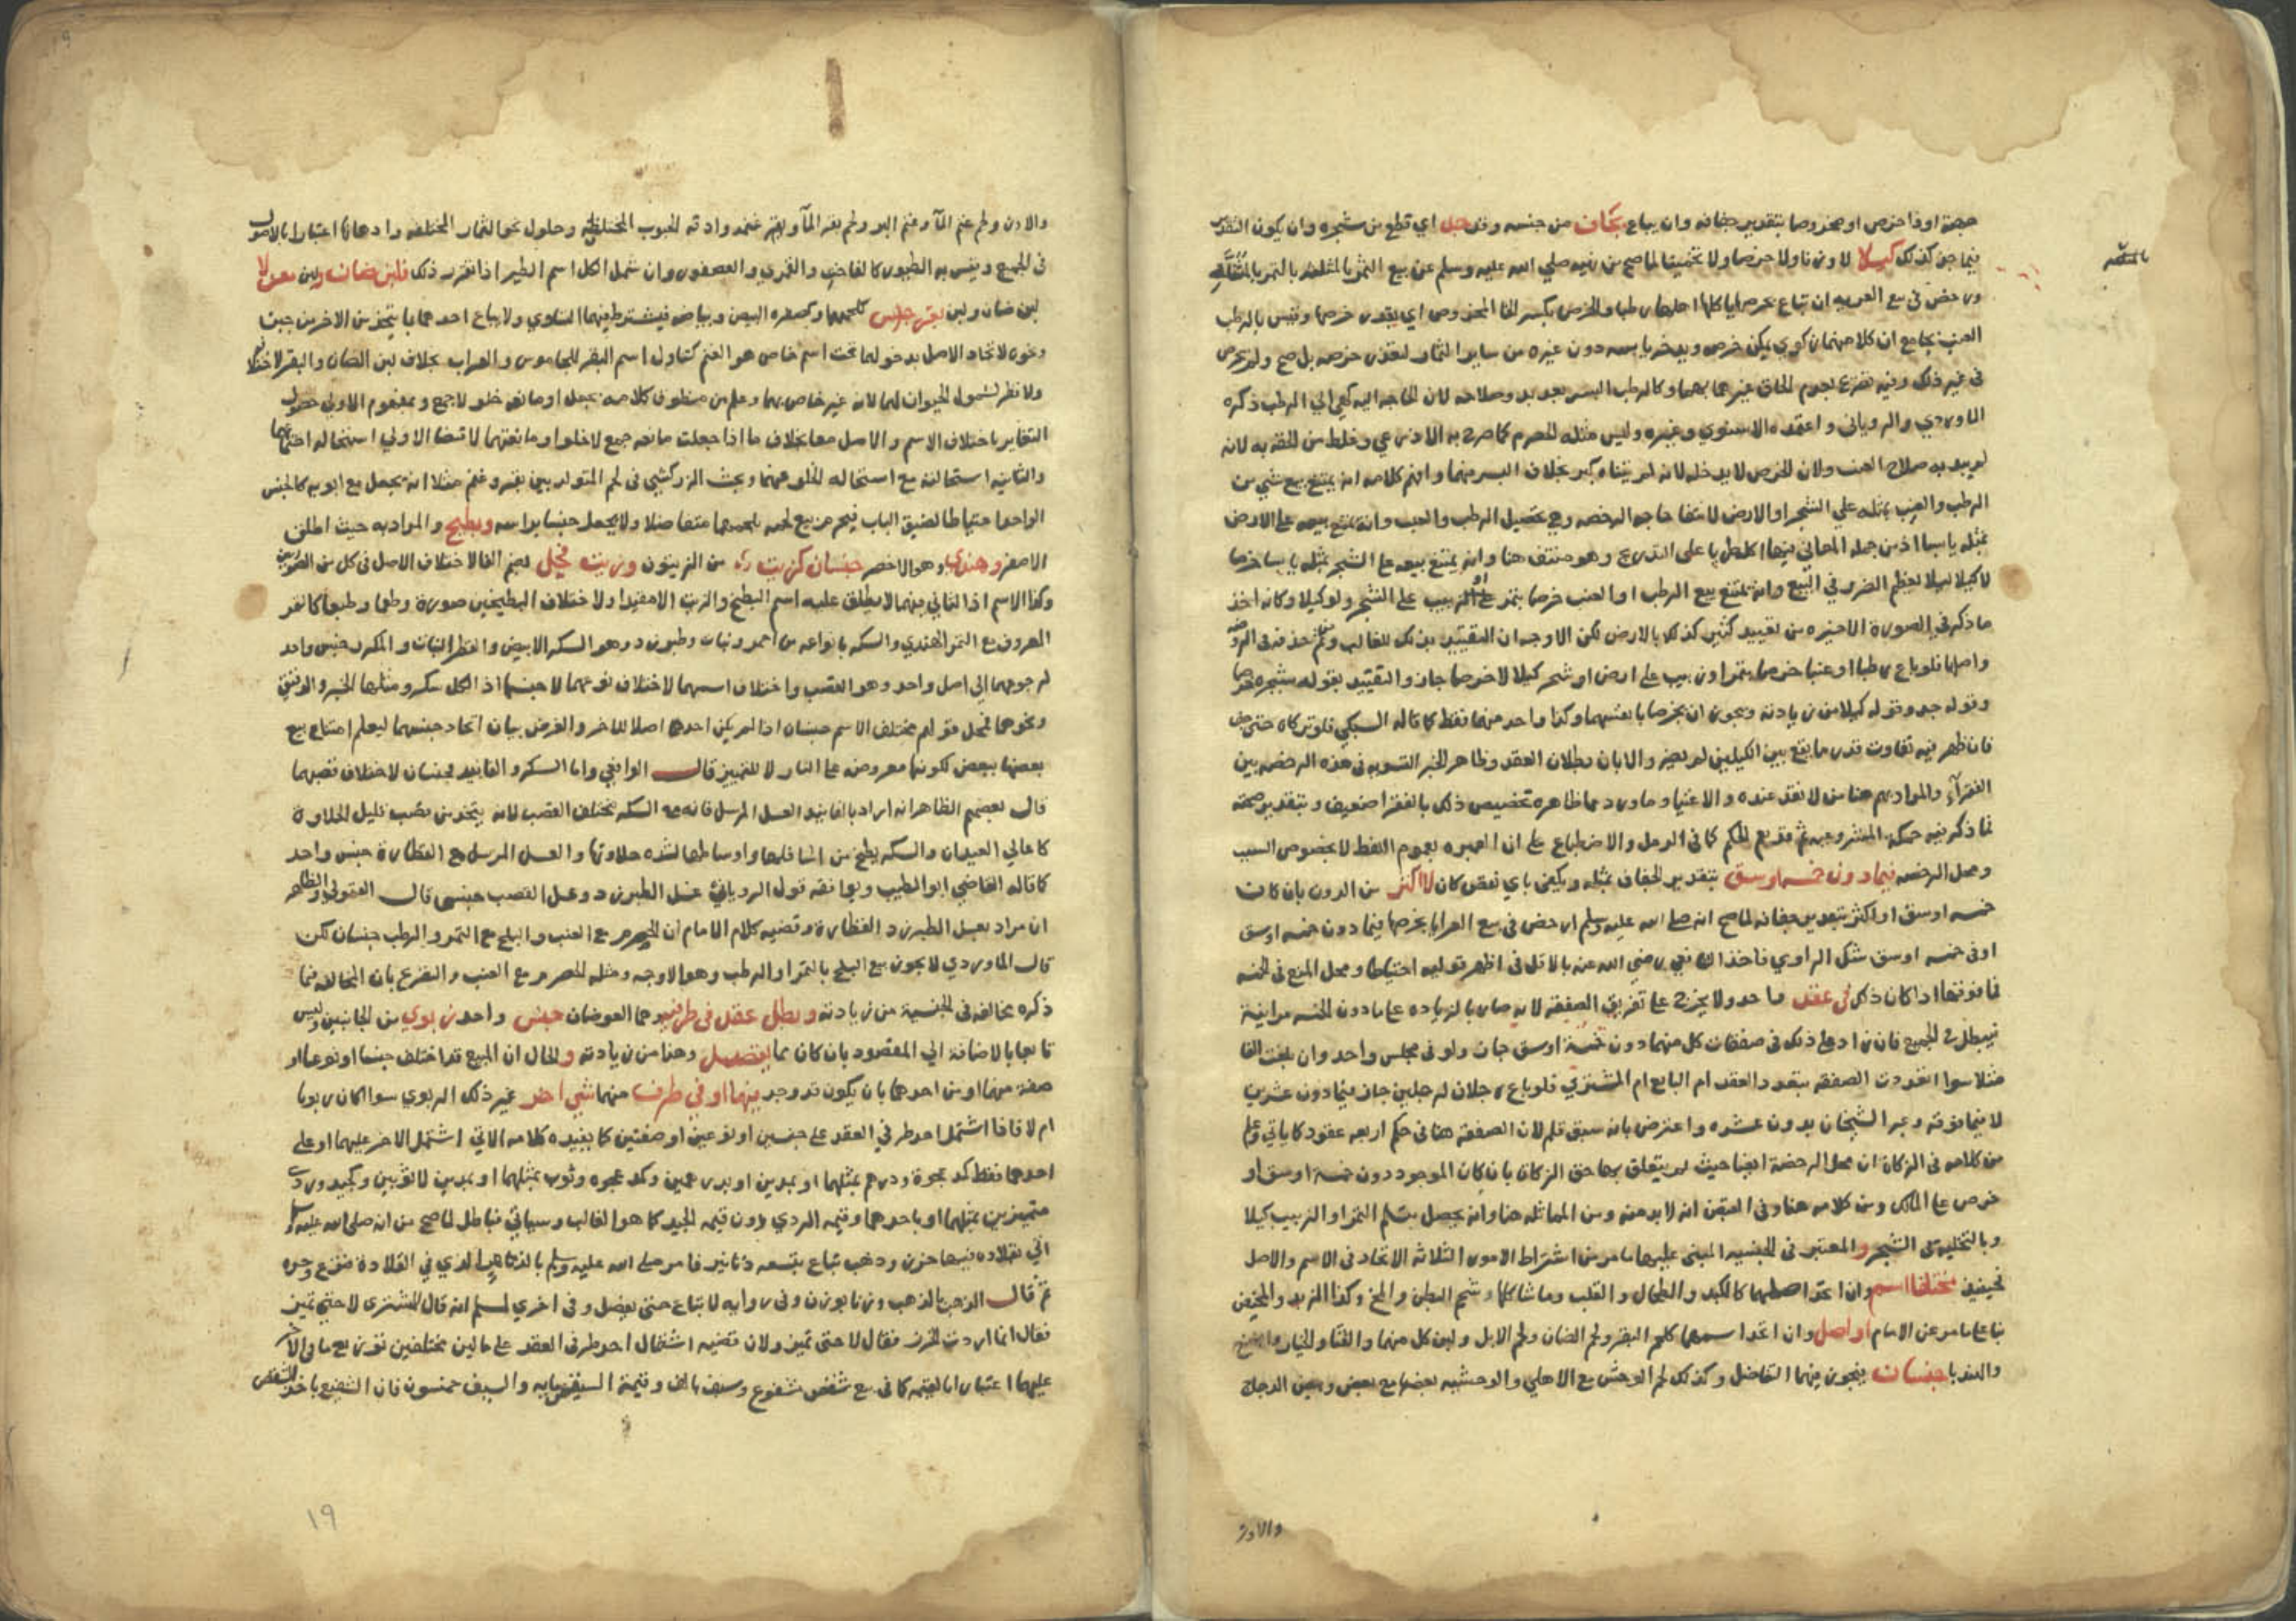 حبة او ذا خرص او مخروصا بتقدير جفافه وان يباع بجاف من جنسه وقد جل اي قطع من شجره وان يكون التقدير
فيما جف كذلك كيلا لا وزنا ولا خرصا ولا تخمينا لما صح من نهيه صلي الله عليه وسلم عن بيع الثمر بالمثلثة بالتمر بالمثناة
ورخص في بيع العريه ان تباع بخرصها ياكلها اهلها رطبا والخرص بكسر الخا المخروص اي بقدر خرصها وقيس بالرطب
العنب بجامع ان كلا منهما زكوي يمكن خرصه ويدخر يابسه دون غيره من ساير الثمار لتعذر خرصه بل صح ولو بخرص
في غير ذلك وفيه تفريع بجزم الحاق غيرهما بهما وكالرطب البسر بعد بدو صلاحه لان الحاجه اليه كهي الي الرطب ذكره
الماوردي والروياني واعتمده الاسنوي وغيره وليس مثله الحصرم كما صرح به الاذرعي وغلط من الحقه به لانه
لم يبد به صلاح العنب ولان الخرص لا يدخله لانه لم يتناه كبره بخلاف البسر فيهما وافهم كلامه انه يمتنع بيع شي من
الرطب والعنب بمثله علي الشجر او الارض لانتفا حاجه الرخصه وهي تحصيل الرطب والعنب وانه يمتنع بيعه علي الارض
بمثله يابسا اذ من جمله المعاني فيها اكله طريا علي التدريج وهو منتف هنا وانه يمتنع بيعه علي الشجر بمثله يابسا خرصا
لا كيلا ليلا يعظم الغرر في البيع وانه يمتنع بيع الرطب او العنب خرصا بتمر او زبيب علي الشجر ولو كيلا وكانه اخذ
ما ذكر في الصورة الاخيره من تقييد كثير كذلك بالارض لكن الاوجه ان التقييد بذلك للغالب ومن ثم حذفه في الروضه
واصلها فلو باع رطبا او عنبا خرصا بتمر او زبيب علي ارض او شجر كيلا لا خرصا جاز والتقييد بقوله بشجره خرصا
وقوله جد وقوله كيلا من زيادته ويجوز ان يخرصا بانفسهما وكذا واحد منهما فقط كما قاله السبكي فلو تركاه حتي جف
فان ظهر فيه تفاوت قدر ما يقع بين الكيلين لم يضر والا بان بطلان العقد وظاهر الخبر التسويه في هذه الرخصه بين
الفقرآء والمراد بهم هنا من لا نقد عنده والاغنيا وما ورد مما ظاهره تخصيص ذلك بالفقرا ضعيف وبتقدير صحته
فما ذكر فيه حكمة المشروعيه ثم قد يعم الحكم كما في الرمل والاضطباع علي ان العبره بعموم اللفظ لا بخصوص السبب
ومحل الرخصه فيما دون خمسه اوسق بتقدير الجفاف بمثله ويكفي باي نقص كان لا اكثر من الدون بان كانت
خمسه اوسق او اكثر بتقدير جفافه لما صح انه صلي الله عليه وسلم ارخص في بيع العرايا بخرصها فيما دون خمسه اوسق
او في خمسه اوسق شك الراوي فاخذ الشافعي رضي الله عنه بالاقل في اظهر قوليه احتياطا ومحل المنع في الخمسه
فما فوقها اذا كان ذلك في عقد واحد ولا يخرج علي تفريق الصفقة لانه صار بالزياده علي ما دون الخمسه مزابنة
فيبطل في الجميع فان زاد علي ذلك في صفقات كل منهما دون خمسة اوسق جاز ولو في مجلس واحد وان بلغت الفا
مثلا سوا تعددت الصفقه بتعدد العقد ام البايع ام المشتري فلو باع رجلان لرجلين جاز فيما دون عشرين
لا فيما فوقه وعبر الشيخان بدون عشره واعترض بانه سبق قلم لان الصفقه هنا في حكم اربعه عقود كما ياتي وعلم
من كلامه في الزكاة ان محل الرخصة ايضا حيث لم يتعلق بها حق الزكاة بان كان الموجود دون خمسة اوسق او
خرص علي المالك ومن كلامه هنا وفي القبض انه لا بد منه ومن المماثله هنا وانه يحصل بتسلم التمر او الزبيب كيلا
وبالتخليه في الشجر والمعتبر في الجنسيه المبني عليها ما مر من اشتراط الامور الثلاثه الاتحاد في الاسم والاصل
فحينئذ مختلفا اسم وان اتحد اصلهما كالكبد والطحال والقلب وما شاكلها وشحم البطن والمخ وكذا الزبد والمخيض
بنا علي ما مر عن الامام او اصل وان اتحد اسمهما كلحم البقر ولحم الضان ولحم الابل ولبن كل منهما والقثا والخيار
والهندبا جنسان فيجوز فيهما التفاضل وكذلك لحم الوحش مع الاهلي والوحشيه بعضها مع بعض وبيض الدجاج
والاوز
والاوز ولحم غنم المآ وغنم البر ولحم بقر المآ وبقر غنمه وادقه الحبوب المختلفة وخلول نحو الثمار المختلفه وادهانها اعتبارا بالاصول
في الجميع وقيس به الطيور كالفاخته والقمري والعصفور وان شمل الكل اسم الطير اذا تقرر ذلك فلبن ضان ولبن معز لا
لبن ضان ولبن بقر جنس كلحمهما وكصفره البيض وبياضه فيشترط فيهما التساوي ولا يباع احدهما بما يتخذ من الاخر من جبن
ونحوه لاتحاد الاصل بدخولهما تحت اسم خاص هو الغنم كتناول اسم البقر للجاموس والعراب بخلاف لبن الضان والبقر لاختلافه
ولا نظر لشمول الحيوان لهما لانه غير خاص بهما وعلم من منطوق كلامه بجعل او مانعه خلو لا جمع ومفهوم الاولي حصول
التغاير باختلاف الاسم والاصل معا بخلاف ما اذا جعلت مانعه جمع لا خلو او مانعتهما لاقتضا الاولي استحاله اجتماعهما
والثانيه استحالته مع استحاله الخلو عنهما وبحث الزركشي في لحم المتولد بين بقر وغنم مثلا انه يجعل مع ابويه كالجنس
الواحد احتياطا لضيق الباب فيحرم بيع لحمه بلحمهما متفاضلا ولا يجعل جنسا براسه وبطيخ والمراد به حيث اطلق
الاصفر وهندي وهو الاخضر جنسان كزيت من الزيتون وزيت فجل بضم الفا لاختلاف الاصل في كل من الصورتين
وكذا الاسم اذ الثاني منهما لا يطلق عليه اسم البطيخ والزيت الا مقيدا ولاختلاف البطيخين صورة وطعما وطبعا كالتمر
المعروف مع التمر الهندي والسكر بانواعه من احمر ونبات وطبرزد وهو السكر الابيض والقطر النبات والمكرر جنس واحد
لرجوعهما الي اصل واحد وهو القصب واختلاف اسمهما لاختلاف نوعهما لا جنسهما اذ الكل سكر ومثلها الخبز والدقيق
ونحوهما فمحل قولهم مختلف الاسم جنسان اذا لم يكن احدهما اصلا للاخر والغرض بيان اتحاد جنسهما ليعلم امتناع بيع
بعضها ببعض لكونها معروضه علي النار لا للتمييز قال الرافعي واما السكر والفانيد فجنسان لاختلاف قصبهما
قال بعضهم الظاهر انه اراد بالفانيد العسل المرسل فانه مع السكر مختلف القصب لانه يتخذ من قصب قليل الحلاوة
كاعالي العيدان والسكر يطبخ من اسافلها واوساطها لشده حلاوتها والعسل المرسل مع القطارة جنس واحد
كما قاله القاضي ابو الطيب ويوافقه قول الروياني عسل الطبرزد وعسل القصب جنس قال القمولي والظاهر
ان مراده بعسل الطبرزد القطارة وقضيه كلام الامام ان الحصرم مع العنب والبلح مع التمر والرطب جنسان لكن
قال الماوردي لا يجوز بيع البلح بالتمر او الرطب وهو الاوجه ومثله الحصرم مع العنب والتفريع بان المخالفه فيما
ذكره مخالفه في الجنسية من زيادته وبطل عقد في طرفيه وهما العوضان جنس واحد ربوي من الجانبين وليس
تابعا بالاضافة الي المقصود بان كان مما يفصل وهذا من زيادته والحال ان المبيع قد اختلف جنسا او نوعا او
صفة منهما او من احدهما بان يكون قد وجد فيهما او في طرف منهما شي اخر غير ذلك الربوي سوا اكان ربويا
ام لا فاذا اشتمل احد طرفي العقد علي جنسين او نوعين او صفتين كما يفيده كلامه الاتي اشتمل الاخر عليهما او علي
احدهما فقط كمد عجوة ودرهم بمثلهما او بمدين او بدرهمين وكمد عجوه وثوب بمثلهما او بمدين لا بثوبين وكجيد وردي
متميزين بمثلهما او باحدهما وقيمه الردي دون قيمه الجيد كما هو الغالب وسياتي فباطل لما صح من انه صلي الله عليه وسلم
اتي بقلاده فيها خرز وذهب تباع بتسعه دنانير فامر صلي الله عليه وسلم بالذهب الذي في القلادة فنزع وحده
ثم قال الذهب بالذهب وزنا بوزن وفي روايه لا تباع حتي تفصل وفي اخري لمسلم انه قال للمشتري لا حتي تميز
فقال انما اردت الخرز فقال لا حتي تميز ولان قضيه اشتمال احد طرفي العقد علي مالين مختلفين توزيع ما في الاخر
عليهما اعتبارا بالقيمه كما في بيع شقص مشفوع وسيف بالف وقيمة الشقص مايه والسيف خمسون فان الشفيع ياخذ الشقص
١٩